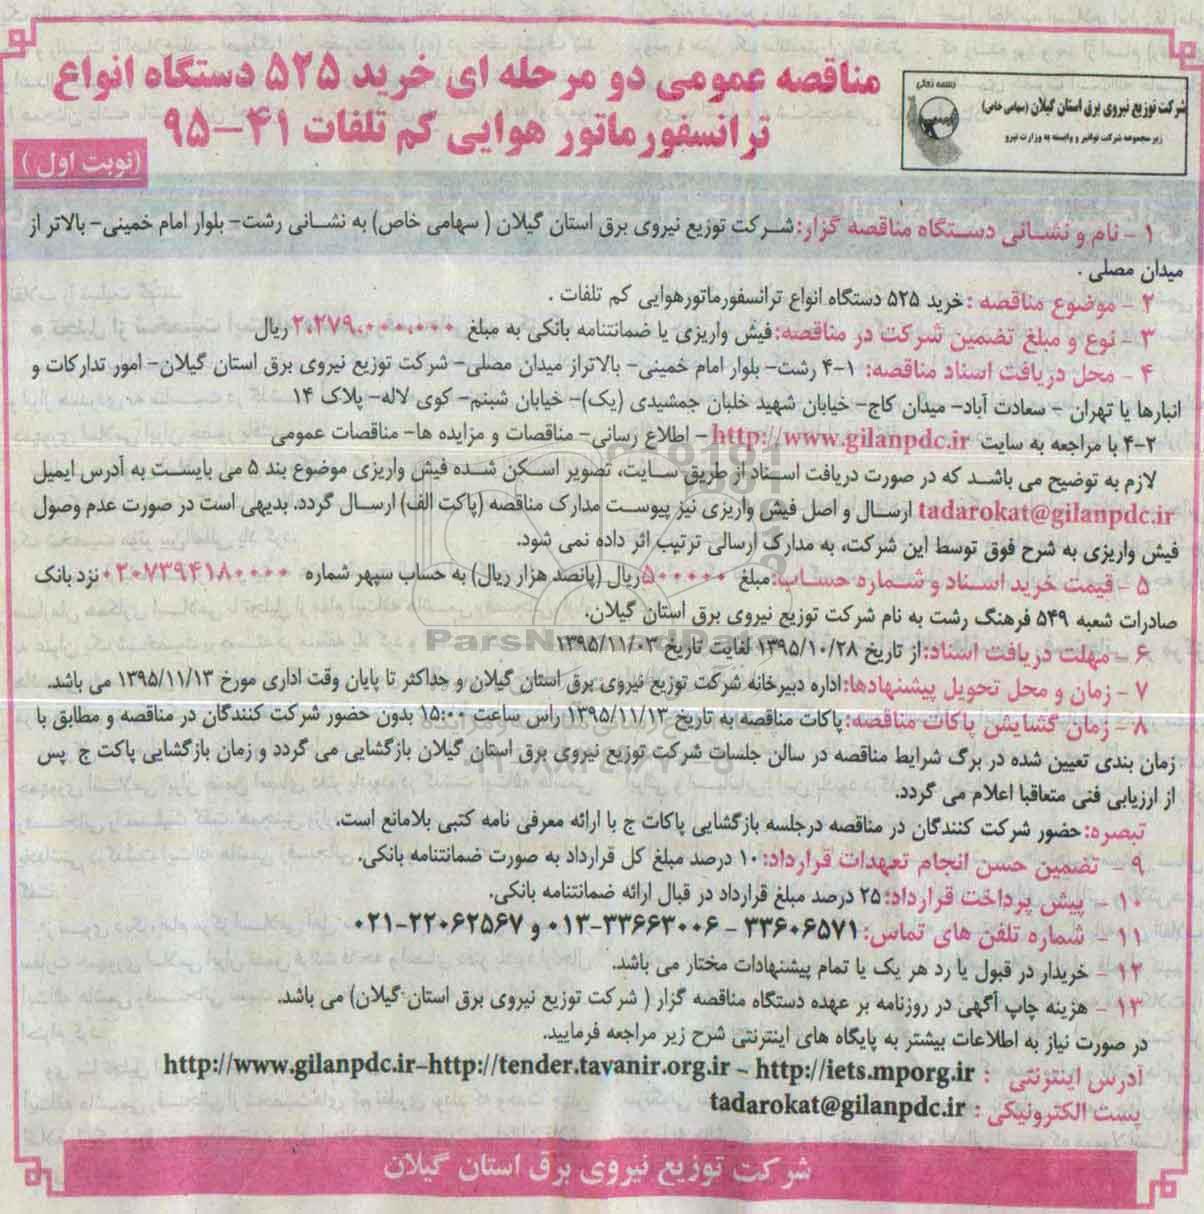 مناقصه عمومی دو مرحله ای خرید ۵۲۵ دستگاه انواع
ترانسفورماتور هوایی کم تلفات ۴۱-۹۵
(نوبت اول)
بسمه تعالی
شرکت توزیع نیروی برق استان گیلان (سهامی خاص)
زیر مجموعه شرکت توانیر و وابسته به وزارت نیرو
۱ - نام و نشانی دستگاه مناقصه گزار: شرکت توزیع نیروی برق استان گیلان ( سهامی خاص) به نشانی رشت- بلوار امام خمینی- بالاتر از
میدان مصلی .
۲ - موضوع مناقصه : خرید ۵۲۵ دستگاه انواع ترانسفورماتورهوایی کم تلفات .
۳ - نوع و مبلغ تضمین شرکت در مناقصه: فیش واریزی یا ضمانتنامه بانکی به مبلغ ۲،۲۷۹،۰۰۰،۰۰۰ ریال
۴ - محل دریافت اسناد مناقصه: ۴-۱ رشت- بلوار امام خمینی- بالاتراز میدان مصلی- شرکت توزیع نیروی برق استان گیلان- امور تدارکات و
انبارها یا تهران - سعادت آباد- میدان کاج- خیابان شهید خلبان جمشیدی (یک)- خیابان شبنم- کوی لاله- پلاک ۱۴
۴-۲ با مراجعه به سایت http://www.gilanpdc.ir - اطلاع رسانی- مناقصات و مزایده ها- مناقصات عمومی
لازم به توضیح می باشد که در صورت دریافت اسناد از طریق سایت، تصویر اسکن شده فیش واریزی موضوع بند ۵ می بایست به آدرس ایمیل
tadarokat@gilanpdc.ir ارسال و اصل فیش واریزی نیز پیوست مدارک مناقصه (پاکت الف) ارسال گردد. بدیهی است در صورت عدم وصول
فیش واریزی به شرح فوق توسط این شرکت، به مدارک ارسالی ترتیب اثر داده نمی شود.
۵ - قیمت خرید اسناد و شماره حساب: مبلغ ۵۰۰۰۰۰ ریال (پانصد هزار ریال) به حساب سپهر شماره ۰۲۰۷۳۹۴۱۸۰۰۰۰ نزد بانک
صادرات شعبه ۵۴۹ فرهنگ رشت به نام شرکت توزیع نیروی برق استان گیلان.
۶ - مهلت دریافت اسناد: از تاریخ ۱۳۹۵/۱۰/۲۸ لغایت تاریخ ۱۳۹۵/۱۱/۰۳
۷ - زمان و محل تحویل پیشنهادها: اداره دبیرخانه شرکت توزیع نیروی برق استان گیلان و حداکثر تا پایان وقت اداری مورخ ۱۳۹۵/۱۱/۱۳ می باشد.
۸ - زمان گشایش پاکات مناقصه: پاکات مناقصه به تاریخ ۱۳۹۵/۱۱/۱۳ راس ساعت ۱۵:۰۰ بدون حضور شرکت کنندگان در مناقصه و مطابق با
زمان بندی تعیین شده در برگ شرایط مناقصه در سالن جلسات شرکت توزیع نیروی برق استان گیلان بازگشایی می گردد و زمان بازگشایی پاکت ج پس
از ارزیابی فنی متعاقبا اعلام می گردد.
تبصره: حضور شرکت کنندگان در مناقصه درجلسه بازگشایی پاکات ج با ارائه معرفی نامه کتبی بلامانع است.
۹ - تضمین حسن انجام تعهدات قرارداد: ۱۰ درصد مبلغ کل قرارداد به صورت ضمانتنامه بانکی.
۱۰ - پیش پرداخت قرارداد: ۲۵ درصد مبلغ قرارداد در قبال ارائه ضمانتنامه بانکی.
۱۱ - شماره تلفن های تماس: ۳۳۶۰۶۵۷۱ - ۳۳۶۶۳۰۰۶-۰۱۳ و ۲۲۰۶۲۵۶۷-۰۲۱
۱۲ - خریدار در قبول یا رد هر یک یا تمام پیشنهادات مختار می باشد.
۱۳ - هزینه چاپ آگهی در روزنامه بر عهده دستگاه مناقصه گزار ( شرکت توزیع نیروی برق استان گیلان) می باشد.
در صورت نیاز به اطلاعات بیشتر به پایگاه های اینترنتی شرح زیر مراجعه فرمایید.
آدرس اینترنتی : http://www.gilanpdc.ir-http://tender.tavanir.org.ir - http://iets.mporg.ir
پست الکترونیکی : tadarokat@gilanpdc.ir
شرکت توزیع نیروی برق استان گیلان